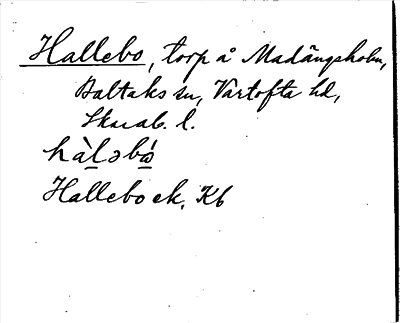 Hallebo, torp å Madängsholm,
Baltaks sn, Vartofta hd,
Skarab. l.
hàləbó
Hallebo ek. Kb